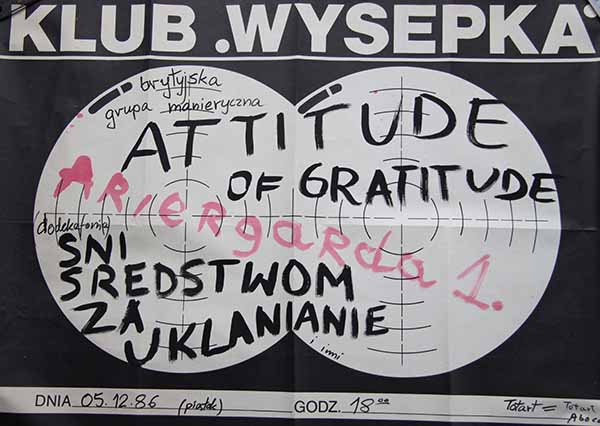 KLUB .WYSEPKA
brytyjska
grupa manieryczna
ATTITUDE
OF GRATITUDE
Ariergarda 1.
(dodekafonia)
SNI
SREDSTWOM
ZA
UKLANIANIE
i inni
DNIA 05.12.86 (piątek) GODZ. 18⁰⁰
Totart = Totart